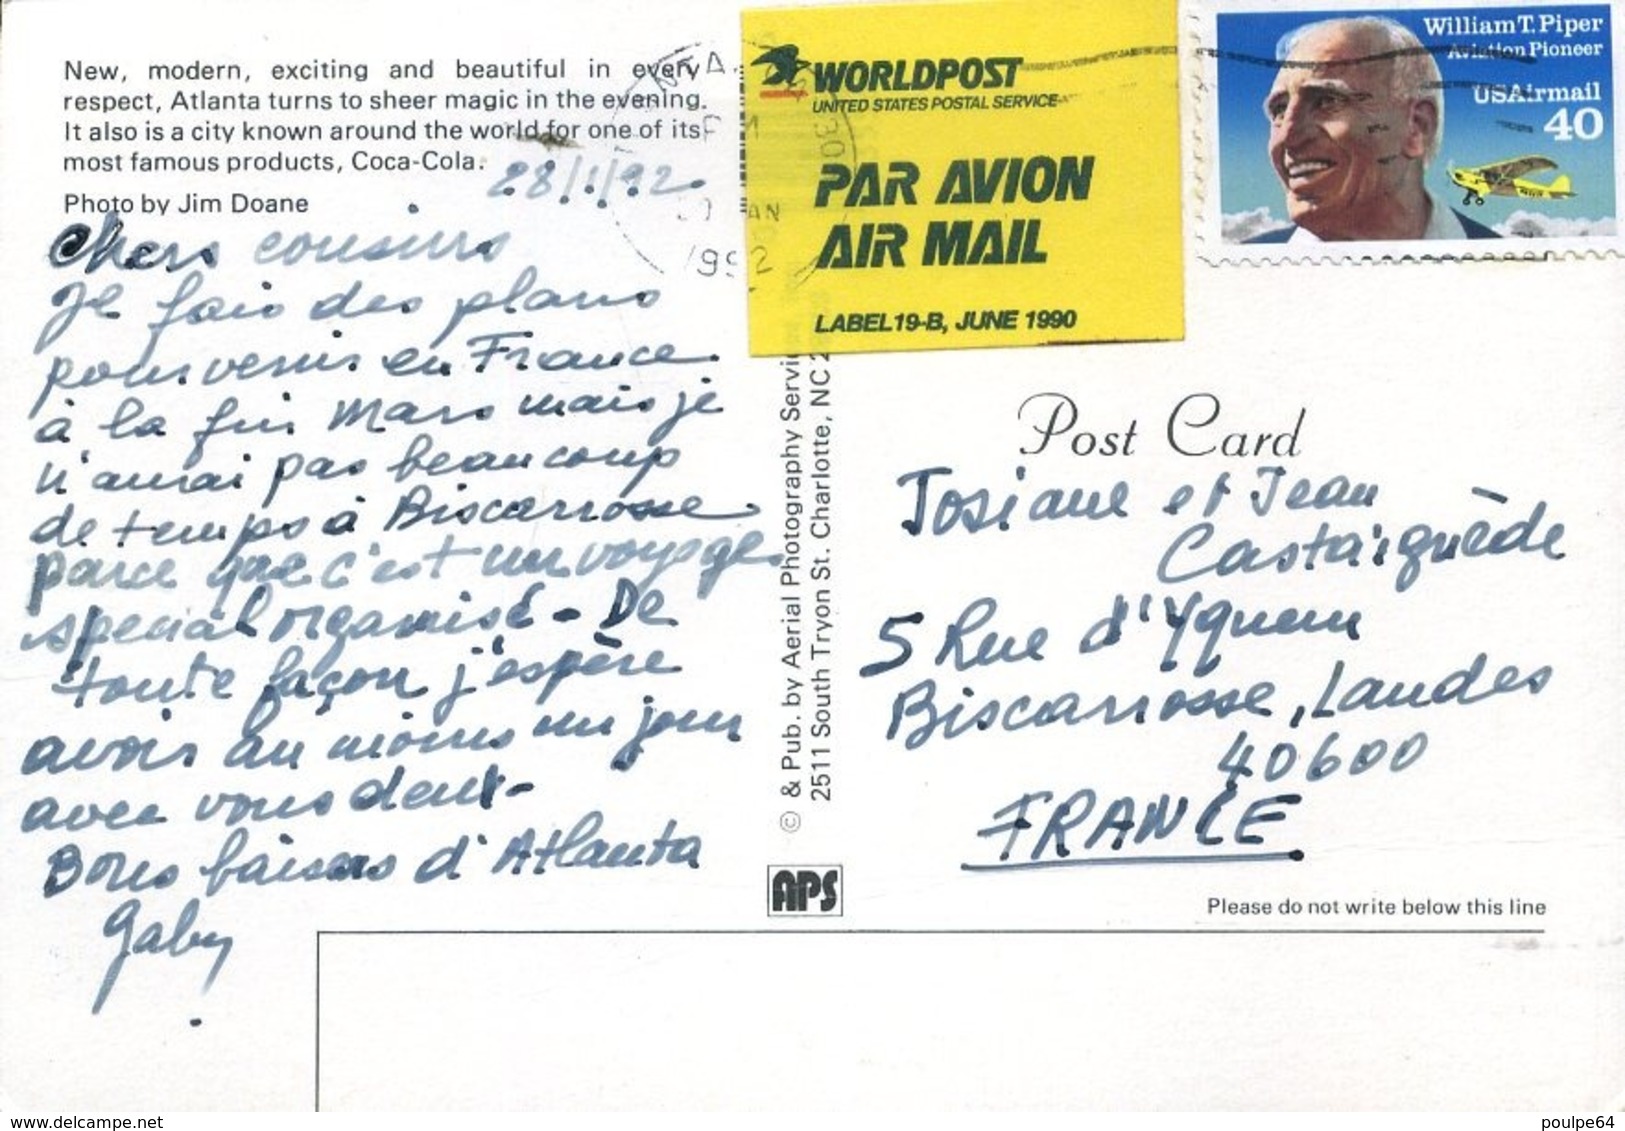 New, modern, exciting and beautiful in every
respect, Atlanta turns to sheer magic in the evening.
It also is a city known around the world for one of its
most famous products, Coca-Cola.
Photo by Jim Doane
28/1/92
Chers cousins
Je fais des plans
pour venir en France
à la fin Mars mais je
n'aurai pas beaucoup
de temps à Biscarrosse
parce que c'est un voyage
special organisé - De
toute façon j'espère
avoir au moins un jour
avec vous deux -
Bons baisers d'Atlanta
Gaby
PM
1992
WORLDPOST
UNITED STATES POSTAL SERVICE
PAR AVION
AIR MAIL
LABEL 19-B, JUNE 1990
William T. Piper
Aviation Pioneer
USAirmail
40
© & Pub. by Aerial Photography Servic
2511 South Tryon St. Charlotte, NC 2
APS
Post Card
Josiane et Jean
Castaiguède
5 Rue d'Yquem
Biscarrosse, Landes
40600
FRANCE
Please do not write below this line
www.delcampe.net
poulpe64